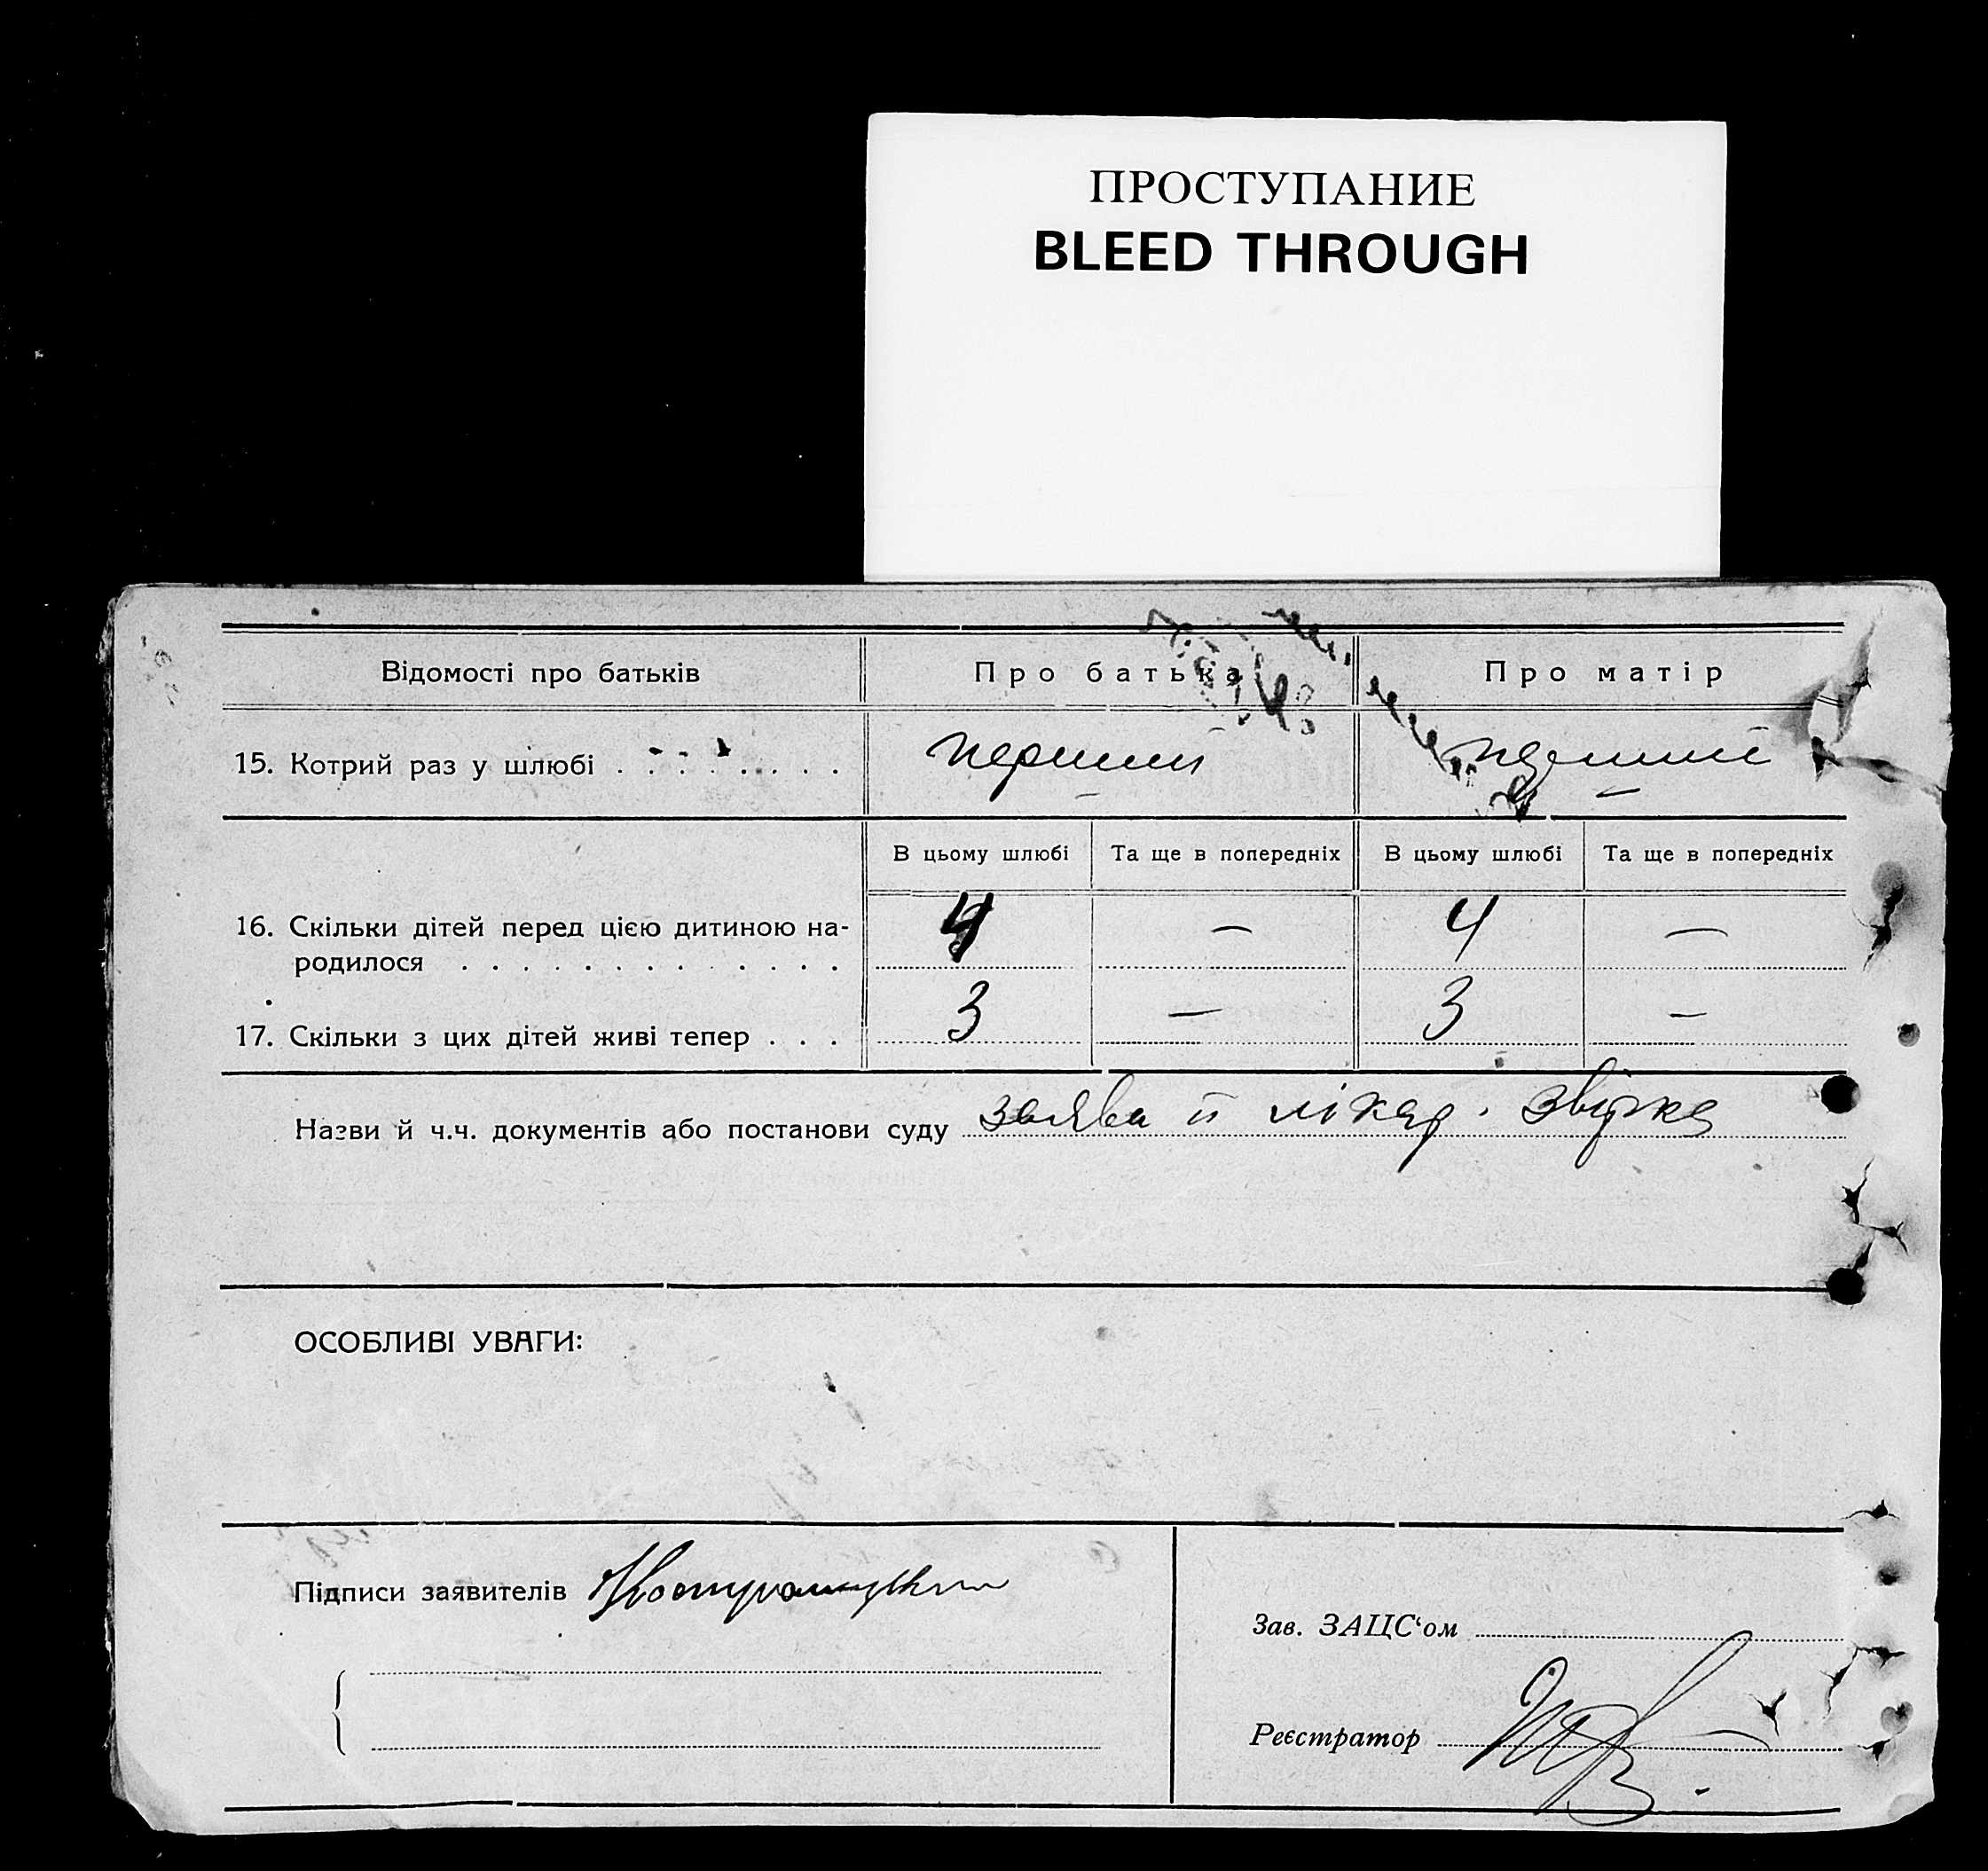 ПРОСТУПАНИЕ
BLEED THROUGH
Відомості про батьків Про батька Про матір
15. Котрий раз у шлюбі . . . . . . . . перший перший
В цьому шлюбі Та ще в попередніх В цьому шлюбі Та ще в попередніх
16. Скільки дітей перед цією дитиною на- 4 — 4 —
родилося . . . . . . . . . . . . .
17. Скільки з цих дітей живі тепер . . . 3 — 3 —
Назви й ч.ч. документів або постанови суду заява й лікар. звірка
ОСОБЛИВІ УВАГИ:
Підписи заявителів
Зав. ЗАЦС‘ом
Реєстратор